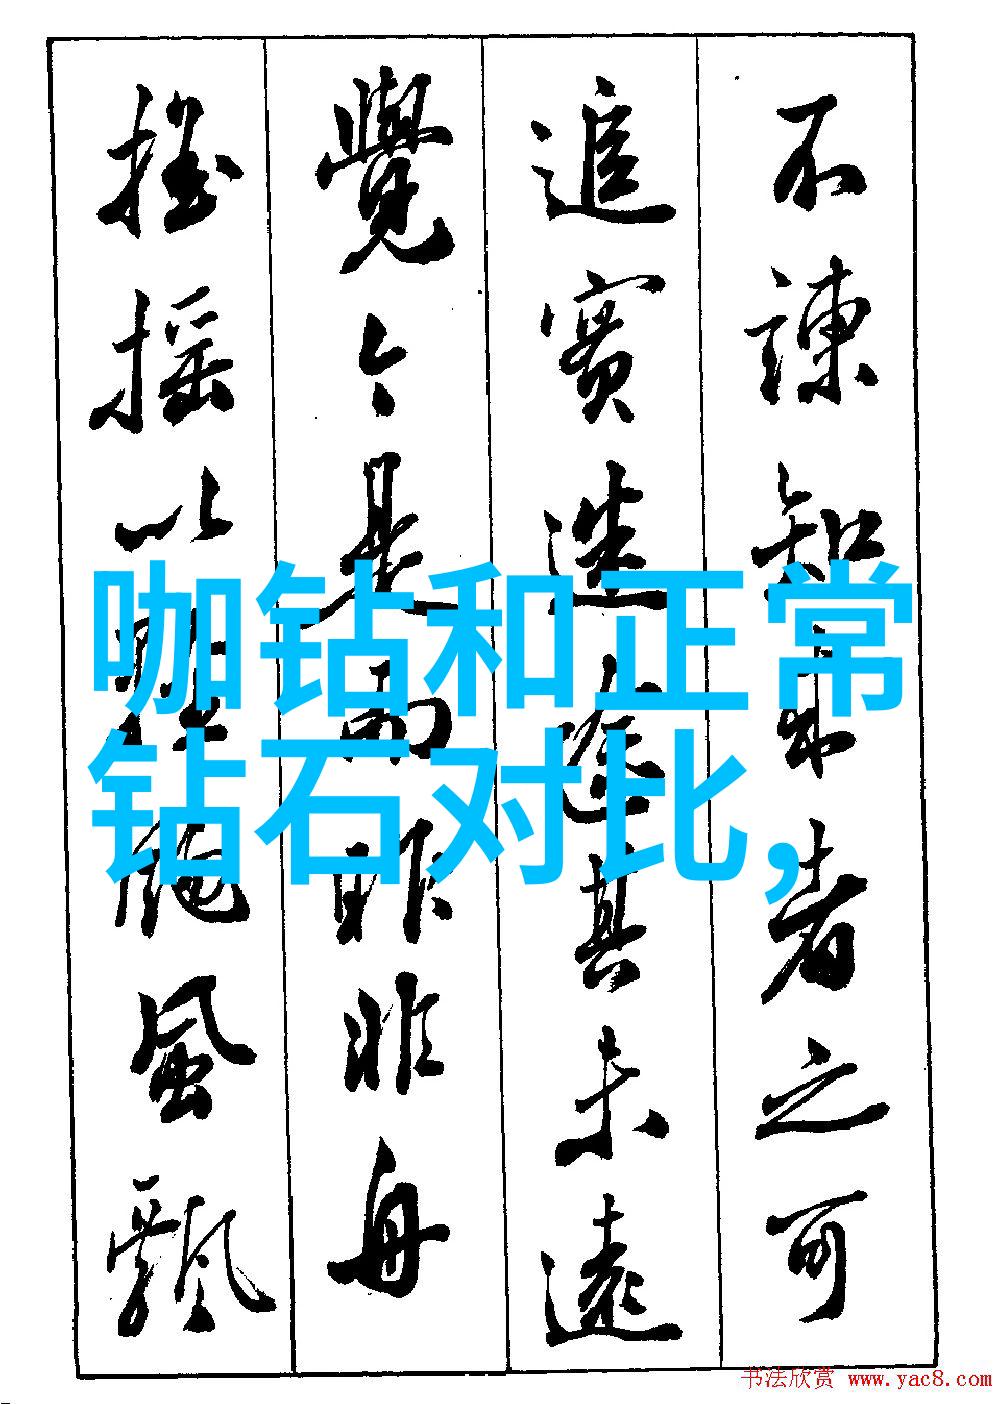 不諫知来者之可
追實迷途其未遠
覺今是而昨非舟
搖摇以輕颺風飄
咖钻和正常
钻石对比，
书法欣赏 www.yac8.com